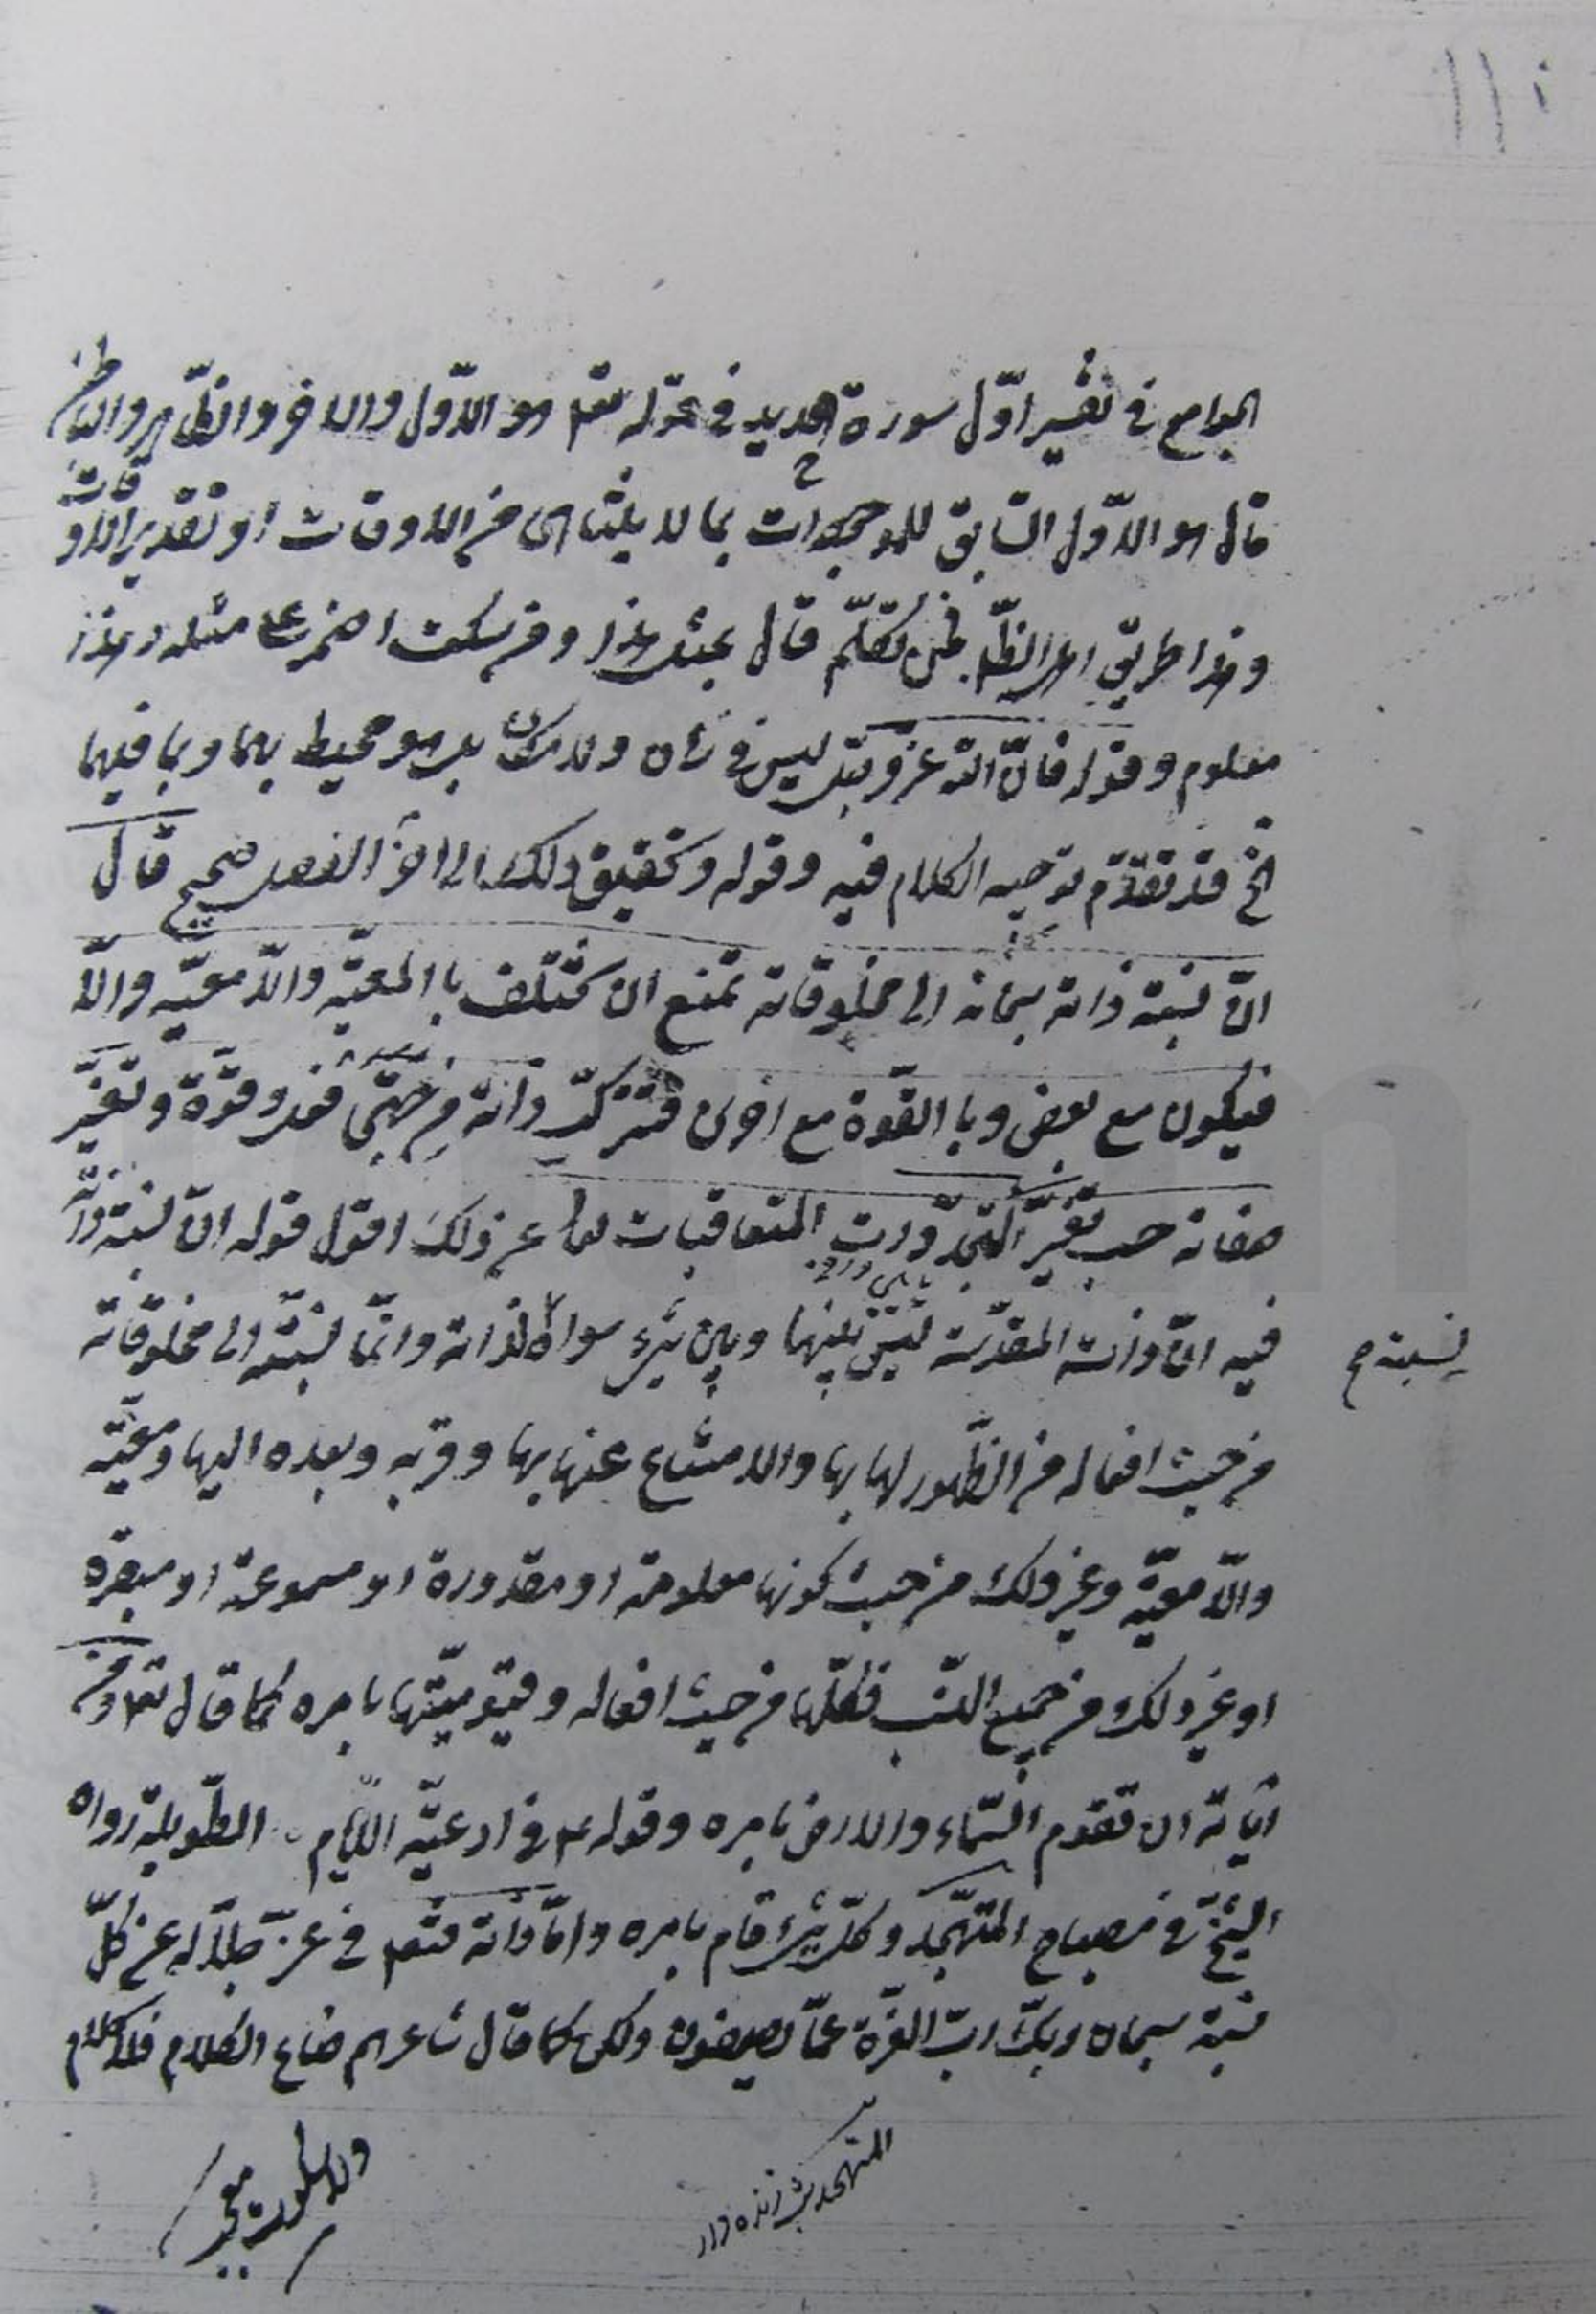 ١١٠
الجوامع في تفسير اوّل سورة الحديد في قوله تعم هو الاوّل والاخر والظّاهر والباطن
قال هو الاوّل السّابق للموجودات بما لا يتناهى من الاوقات او تقدير الاوقات
وهذا طريق اهل الظّاهر فمن تكلّم قال بمثل هذا ومن سكت اضمر على مثله وهذا
معلوم وقوله فانّ اللّه عزّ وجلّ ليس في زمان ولا مكان بل هو محيط بهما وبما فيهما
الخ قد تقدّم توجيه الكلام فيه وقوله وتحقيق ذلك الى اخر الفصل صحيح قال
انّ نسبة ذاته سبحانه الى مخلوقاته تمتنع ان تختلف باالمعيّة واللّا معيّة والّا
فيكون مع بعض وباالقوّة مع اخرى فتتركّب ذاته من جهتى فعل وقوّة وتغيّر
صفاته حسب تغيّر المتجدّدات المتعاقبات تعا عن ذلك اقول قوله انّ نسبة ذاته
فيه انّ ذاته المقدّسة ليس بينها وبين شىء سواه لذاته وانّما نسبته الى مخلوقاته
نسبة ح
من حيث افعاله من الظّهور لها بها والامتناع عنها بها وقربه وبعده اليها ومعيّته
واللّا معيّة وغير ذلك من حيث كونها معلومة او مقدورة او مسموعة او مبصرة
او غير ذلك من جميع النّسب فكلّها من حيث افعاله وقيّوميّتها بامره كما قال تعم ومن
اياته ان تقوم السّماء والارض بامره وقوله ع في ادعيّه الايّام الطّويلة رواه
الشّيخ في مصباح المتهجّد وكلّ شىء قام بامره وامّا ذاته فتعم في عزّ جلاله عن كلّ
نسبة سبحان ربّك ربّ العزّة عمّا يصفون ولكن كما قال شاعرهم ضاع الكلام فلا كلام
المتهجد زنده دار
ولا سكوت معجب